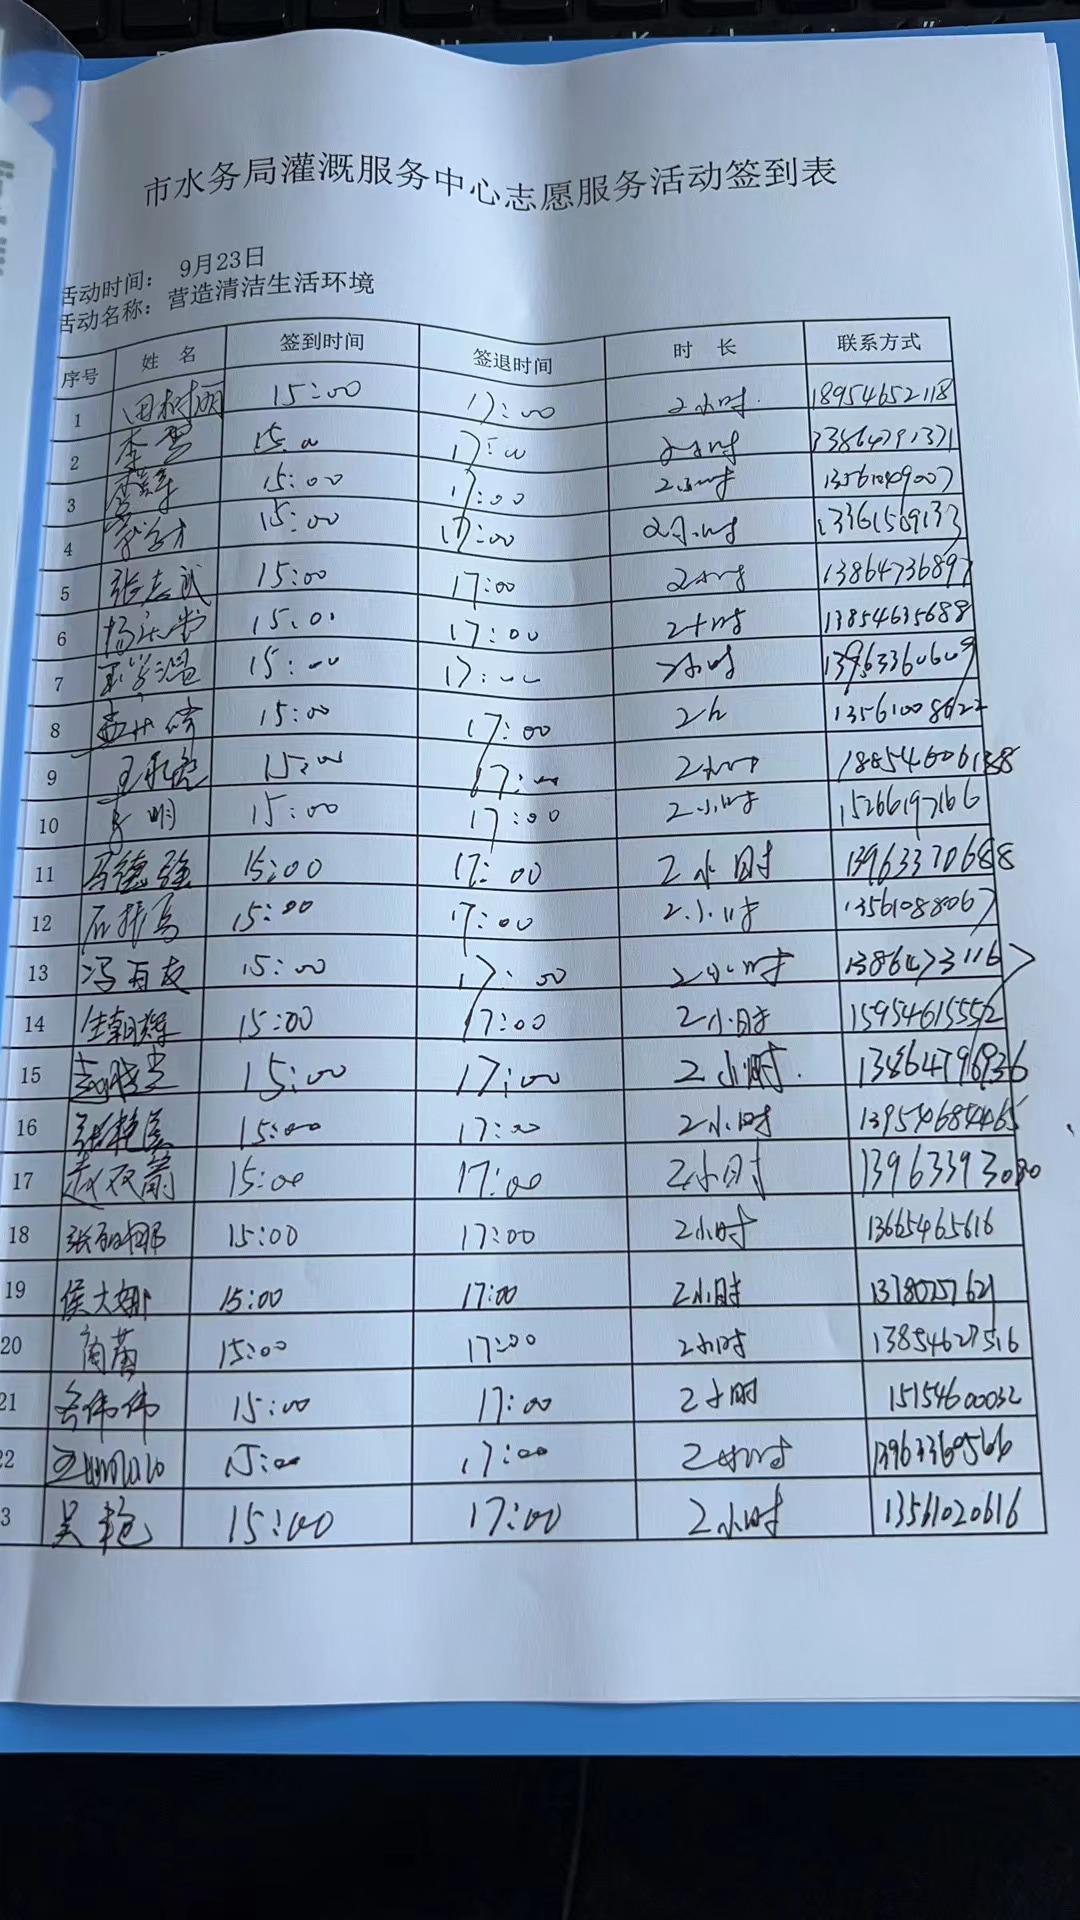 市水务局灌溉服务中心志愿服务活动签到表
活动时间： 9月23日
活动名称：营造清洁生活环境
序号 姓名 签到时间 签退时间 时长 联系方式
1 田树丽 15:00 17:00 2小时. 18954652118
2 15:00 17:00 2小时 13864791371
3 15:00 17:00 2小时 13561049007
4 15:00 17:00 2小时 13361509133
5 张志武 15:00 17:00 2小时 13864736897
6 15:00 17:00 2小时 13854635688
7 15:00 17:00 2小时 13963360609
8 15:00 17:00 2h 13561008622
9 15:00 17:00 2小时
10 15:00 17:00 2小时 15266197166
11 马德强 15:00 17:00 2小时 13963370688
12 石振高 15:00 17:00 2小时 13561088067
13 冯百友 15:00 17:00 2小时 13864731167
14 生朝辉 15:00 17:00 2小时 15954615552
15 15:00 17:00 2小时. 13864796936
16 15:00 17:00 2小时
17 15:00 17:00 2小时 13963393080
18 15:00 17:00 2小时 13665465616
19 侯大娜 15:00 17:00 2小时
20 商蕾 15:00 17:00 2小时 13854627516
21 15:00 17:00 2小时 15154600032
22 15:00 17:00 2小时 13963360566
3 吴艳 15:00 17:00 2小时 13561020616